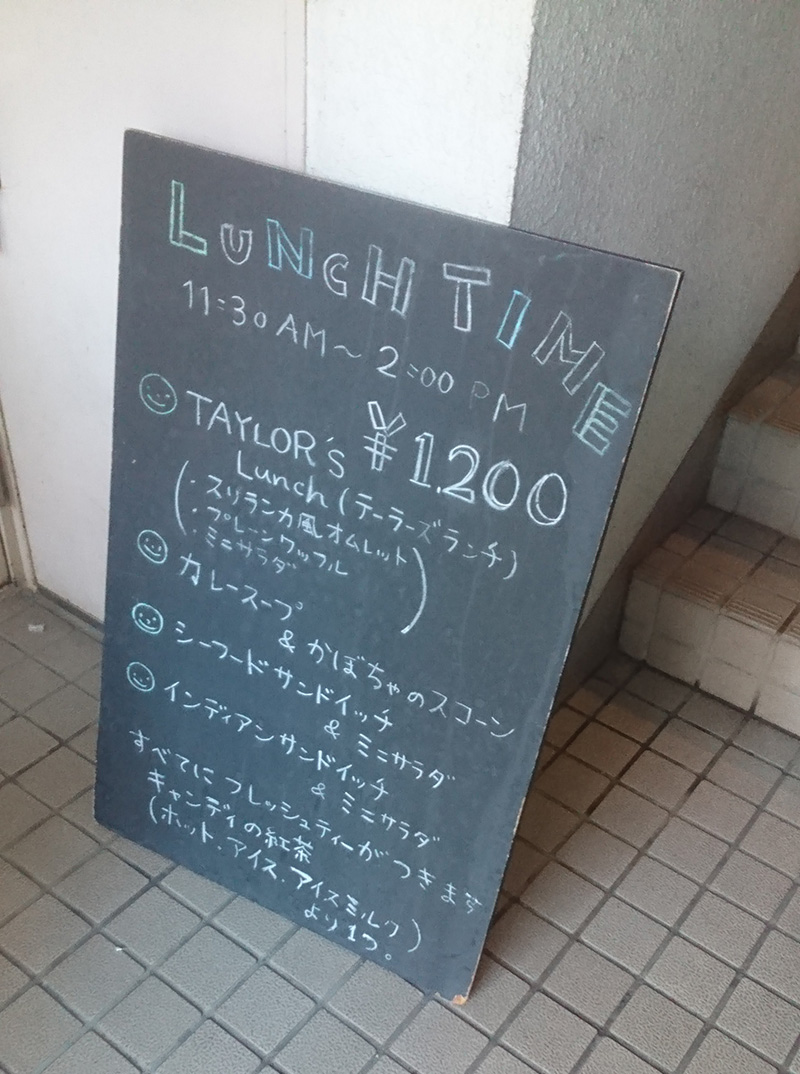 LUNCH TIME
11:30 AM～2:00 PM
TAYLOR'S ¥1.200
Lunch (テーラーズランチ)
(・スリランカ風オムレット
・プレーンワッフル
・ミニサラダ)
カレースープ
& かぼちゃのスコーン
シーフードサンドイッチ
& ミニサラダ
インディアンサンドイッチ
& ミニサラダ
すべてにフレッシュティーがつきます
キャンディの紅茶
(ホット・アイス・アイスミルク)
より1つ。